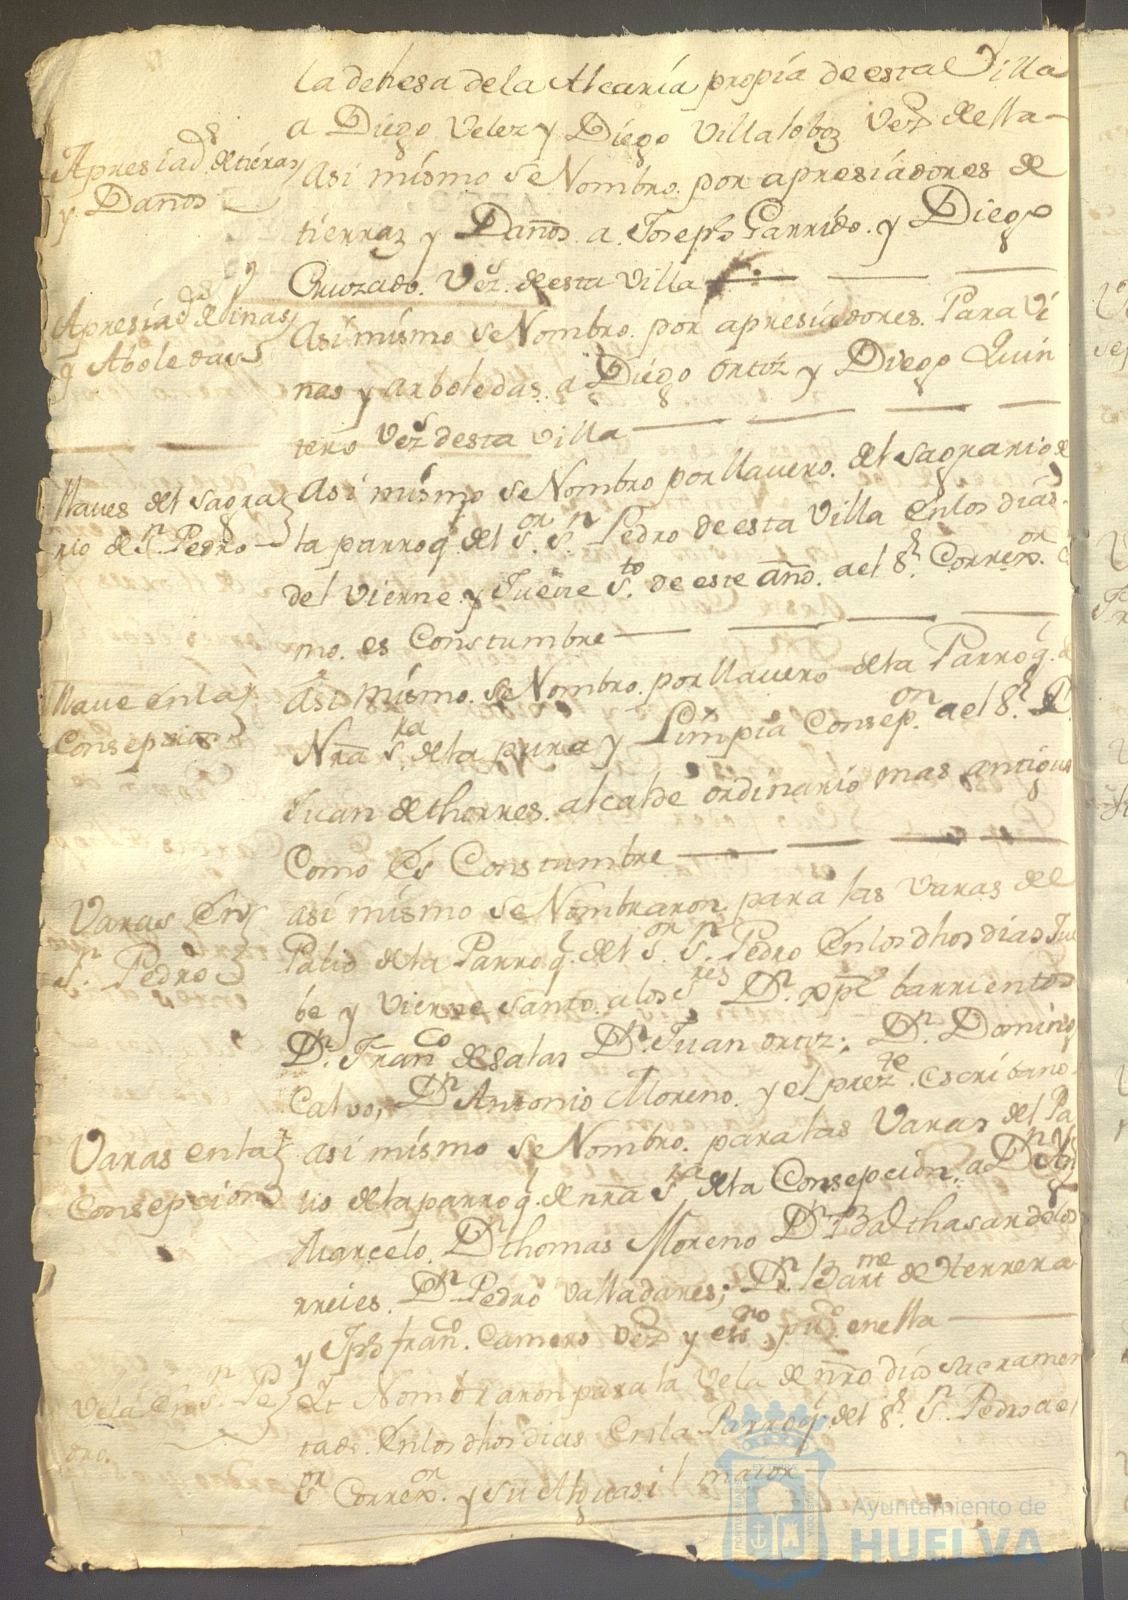 la dehesa de la Alcaria propia de esta Villa
a Diego Velez y Diego Villaloboz Vez.s della
Apresiad.s de tieraz
y Daños
Asi mismo se Nombro. por apresiadores de
tierraz y Daños a Joseph Garrido. y Diego
Cruzado. Vez.s de esta Villa
Apresiad.s de Vinas
y Aboledas
Asi mismo se Nombro. por apresiadores. Para Vi
nas y arboledas. a Diego ortiz y Diego Quin
tero Vez.s desta Villa
llaves del sagra
rio de S.n Pedro
Asi mismo se Nombro por llavero. del sagrario de
la parroq.l del S.or S.n Pedro de esta Villa En los dias
del Vierne y Jueve S.to de este año. a el S.r Correx.or
mo. es Constumbre
llave en la
Consepsion
Asi mismo. se Nombro. por llavero de la Parroq.l
Nra S.ra de la pura y Limpia Consep.on a el S.r D.n
Juan de thorres. alcalde ordinario mas antiguo
Como Es Constumbre
Varas En
S.n Pedro
asi mismo se Nombraron para las varas de el
Palio de la Parroq.l del S.or S.n Pedro En los dhos dias Jue
be y Vierne santo. a los S.res D.n xpl barrientos
D.n Fran.co de salas D.n Juan ortiz; D.n Domingo
Calvo; D.n Antonio Moreno. y el prez.te escribano.
Varas en la
Consepcion
asi mismo se Nombro. para las Varas del Pa
lio de la parroq.l de nra S.ra de la Consepcion. a D.n
Marcelo. D.n thomas Moreno D.n Balthasar de los
rreies. D.n Pedro Valladares; D.n Bar.me de Herrera
y Jph fran.co Camero Vez.s y es.no pu.co en ella
Vela En S.n Pe
dro.
Et Nombraron para la Vela de nro dios sacramen
tado. En los dhos dias En la Parroq.l del S.r S.n Pedro a el
S.or Correx.or y su Alguasil maior
Ayuntamiento de
HUELVA